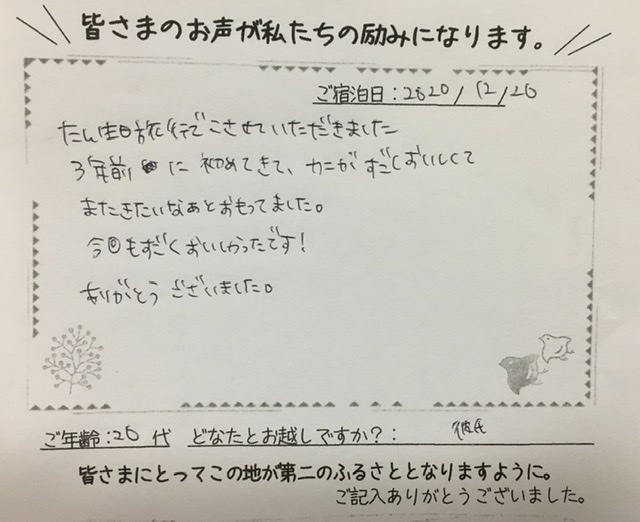 皆さまのお声が私たちの励みになります。
ご宿泊日:2020/12/20
たん生日旅行でこさせていただきました
3年前に初めてきて、カニがすごくおいしくて
またきたいなぁとおもってました。
今回もすごくおいしかったです!
ありがとうございました。
ご年齢:20代 どなたとお越しですか?: 彼氏
皆さまにとってこの地が第二のふるさととなりますように。
ご記入ありがとうございました。